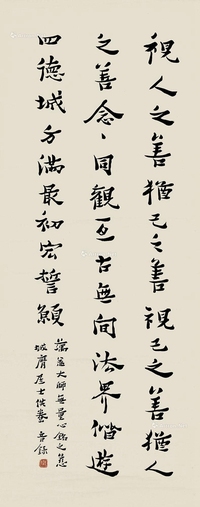 視人之善猶己之善視己之善猶人
之善念々同觀亙古無間法界偕遊
四德城方滿最初宏誓願
蕅益大師無量心銘之意
居士供養 音錄